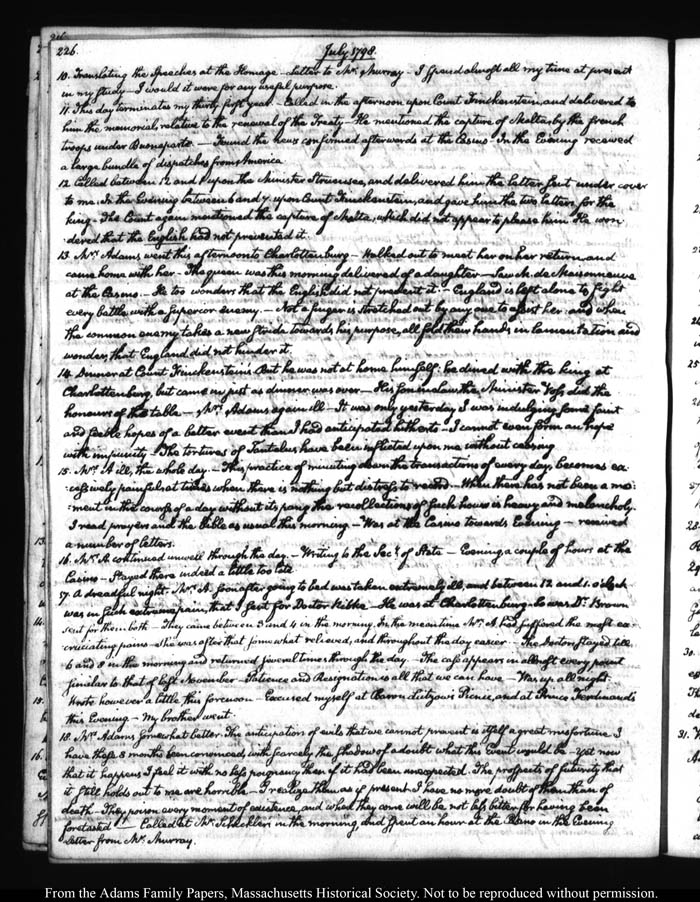 226.
July 1798.
10. Translating the Speeches at the Homage — Letter to Mr. Murray — I spend almost all my time at present
in my study — I would it were for any useful purpose.
11. This day terminates my thirty first year. Called in the afternoon upon Count Finckenstein, and delivered to
him the memorial, relative to the renewal of the Treaty — He mentioned the capture of Malta, by the french
troops under Buonaparte. — Found the news confirmed afterwards at the Casino. In the Evening received
a large bundle of dispatches from America
12. Called between 12 and 1 upon the Minister Struensee, and delivered him the letter sent under cover
to me. In the Evening between 6 and 7. upon Count Finckenstein, and gave him the two letters for the
king — The Count again mentioned the capture of Malta, which did not appear to please him. He won-
dered that the English had not prevented it.
13. Mrs. Adams went this afternoon to Charlottenburg — Walked out to meet her on her return, and
came home with her — The queen was this morning delivered of a daughter — Saw M. de Maisonneuve
at the Casino — He too wonders that the English did not prevent it — England is left alone to fight
every battle, with a superior enemy. — Not a finger is stretched out by any one to assist her. and when
the common enemy takes a new stride towards his purpose, all fold their hands in lamentation and
wonder, that England did not hinder it.
14. Dinner at Count Finckenstein's. But he was not at home himself: he dined with the king at
Charlottenburg, but came in just as dinner was over — His son in law the Minister Voss did the
honours of the table — Mrs. Adams again ill — It was only yesterday I was indulging some faint
and feeble hopes of a better event than I had anticipated hitherto — I cannot even form an hope
with impunity. The tortures of Tantalus have been inflicted upon me without ceasing
15. Mrs. A ill, the whole day. — This practice of minuting down the transactions of every day, becomes ex-
cessively painful, at times when there is nothing but distress to record — When there has not been a mo-
ment in the course of a day without its pang the recollection of such hours is heavy and melancholy.
I read prayers and the bible as usual this morning — Was at the Casino towards Evening — received
a number of letters.
16. Mrs. A continued unwell through the day. — Writing to the Secy. of State — Evening a couple of hours at the
Casino — Stayed there indeed a little too late
17. A dreadful night. Mrs. A. soon after going to bed was taken extremely ill, and between 12. and 1. o'clock
was in such extreme pain, that I sent for Doctor Ribke — He was at Charlottenburg. So was Dr. Brown
sent for them both — They came between 3 and 4 in the morning. In the mean time Mrs. A had suffered the most ex-
cruciating pains — She was after that somewhat relieved, and throughout the day easier. The Doctors stayed till
6 and 8 in the morning and returned several times through the day. — The case appears in almost every point
similar to that of last November — Patience and Resignation is all that we can have — Was up all night.
Wrote however a little this forenoon — Excused myself at Baron Lutzow's Picnic, and at Prince Ferdinand's
this Evening — My brother went.
18. Mrs. Adams somewhat better. The anticipation of evils that we cannot prevent is itself a great misfortune. I
have these 8 months been convinced, with scarcely the shadow of a doubt what the Event would be — Yet now
that it happens I feel it with no less poignancy than if it had been unexpected. The prospects of futurity that
it still holds out to me are horrible — I realize them as if present. I have no more doubt of them than of
death. They poison every moment of existence, and when they come will be not less bitter for having been
foretasted — Called at Mr. in the morning, and spent an hour at the Casino in the Evening
Letter from Mr. Murray.
From the Adams Family Papers, Massachusetts Historical Society. Not to be reproduced without permission.